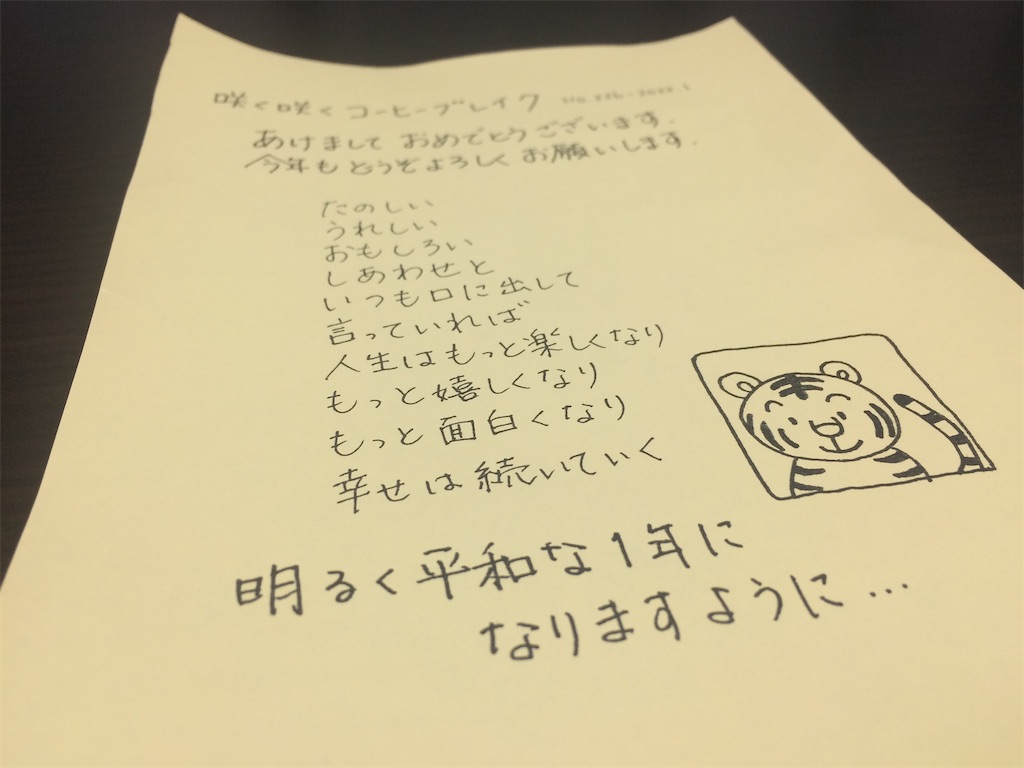 咲く咲くコーヒーブレイク
あけまして おめでとうございます.
今年も どうぞよろしく お願いします.
たのしい
うれしい
おもしろい
しあわせと
いつも口に出して
言っていれば
人生は もっと楽しくなり
もっと嬉しくなり
もっと 面白くなり
幸せは 続いていく
明るく平和な1年に
なりますように…